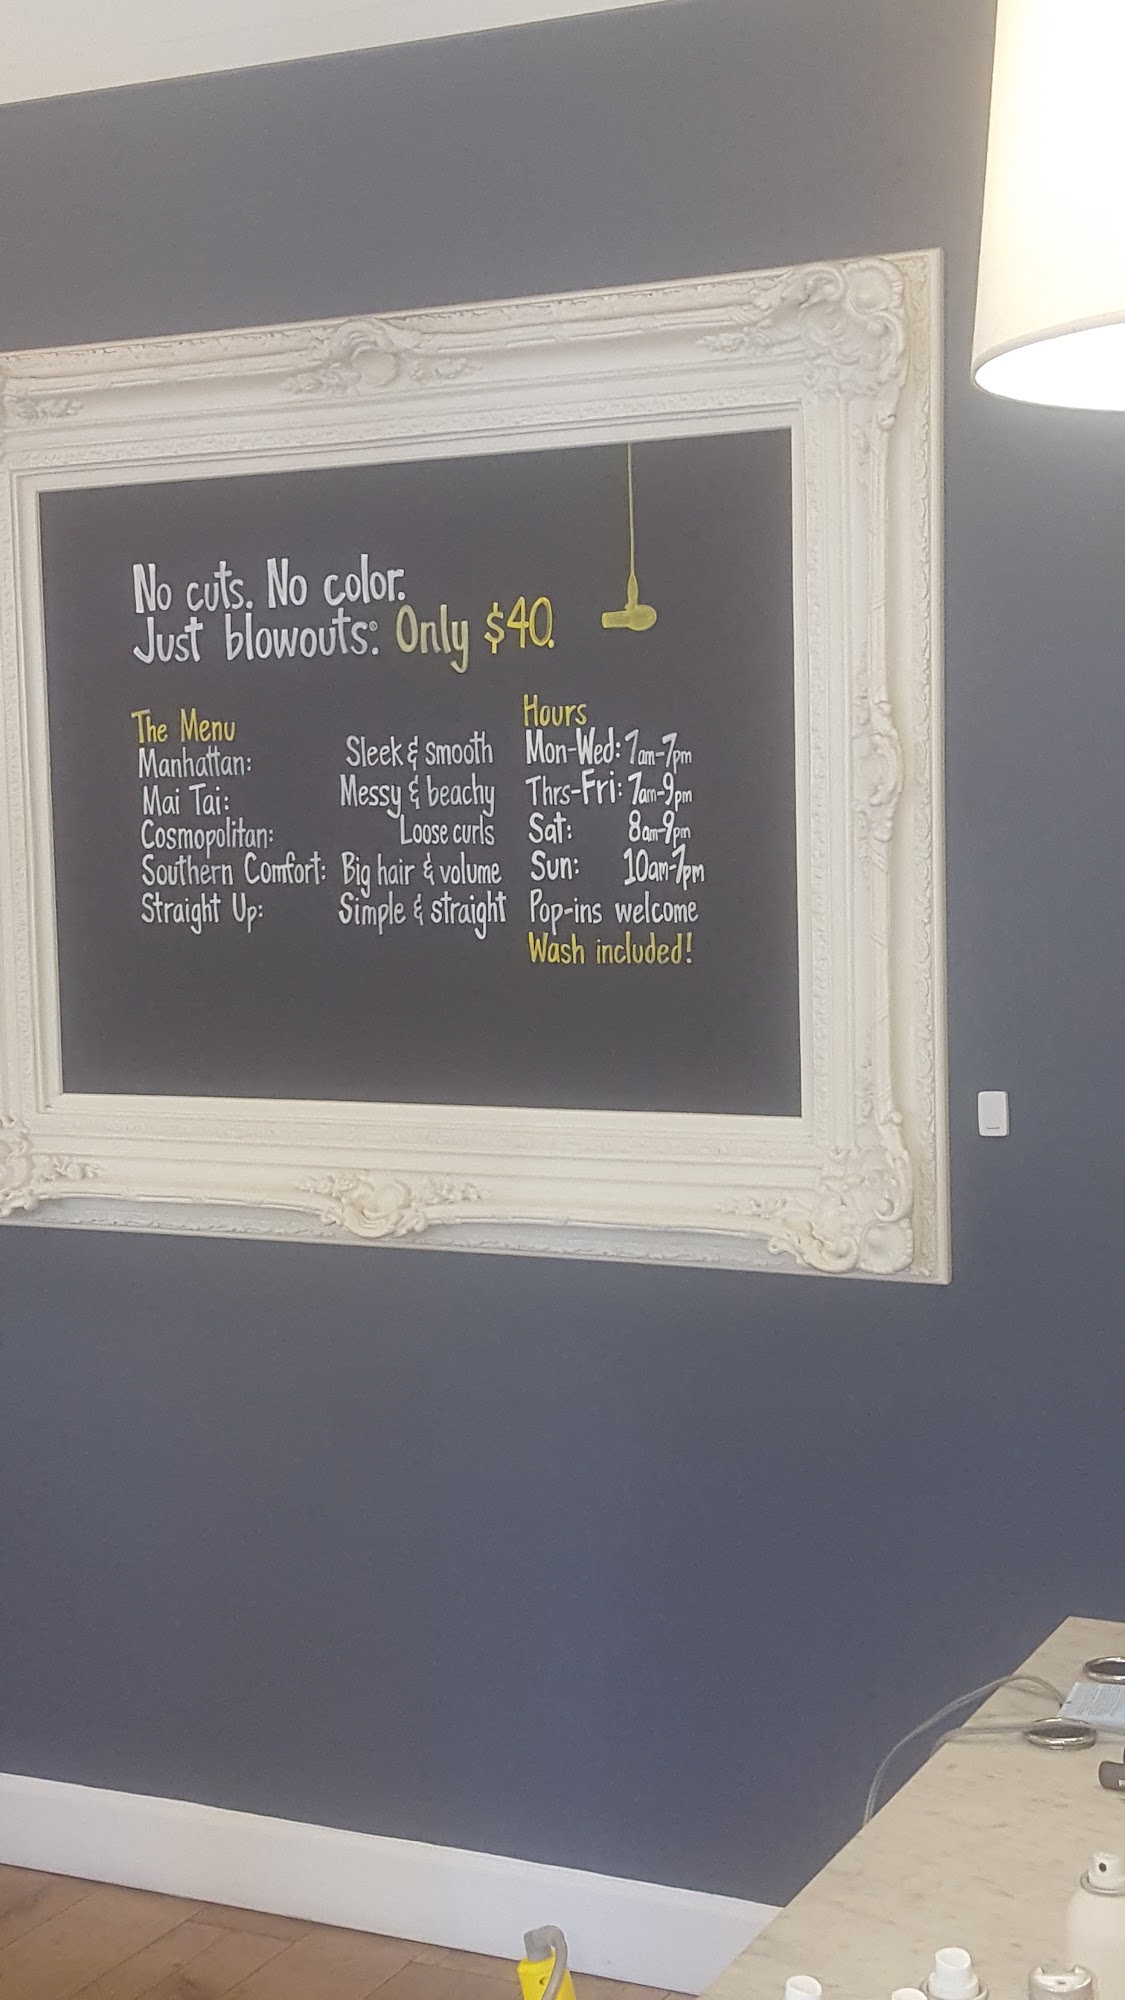 No cuts. No color.
Just blowouts: Only $40.
The Menu
Manhattan: Sleek & smooth
Mai Tai: Messy & beachy
Cosmopolitan: Loose curls
Southern Comfort: Big hair & volume
Straight Up: Simple & straight
Hours
Mon-Wed: 7am-7pm
Thrs-Fri: 7am-9pm
Sat: 8am-9pm
Sun: 10am-7pm
Pop-ins welcome
Wash included!